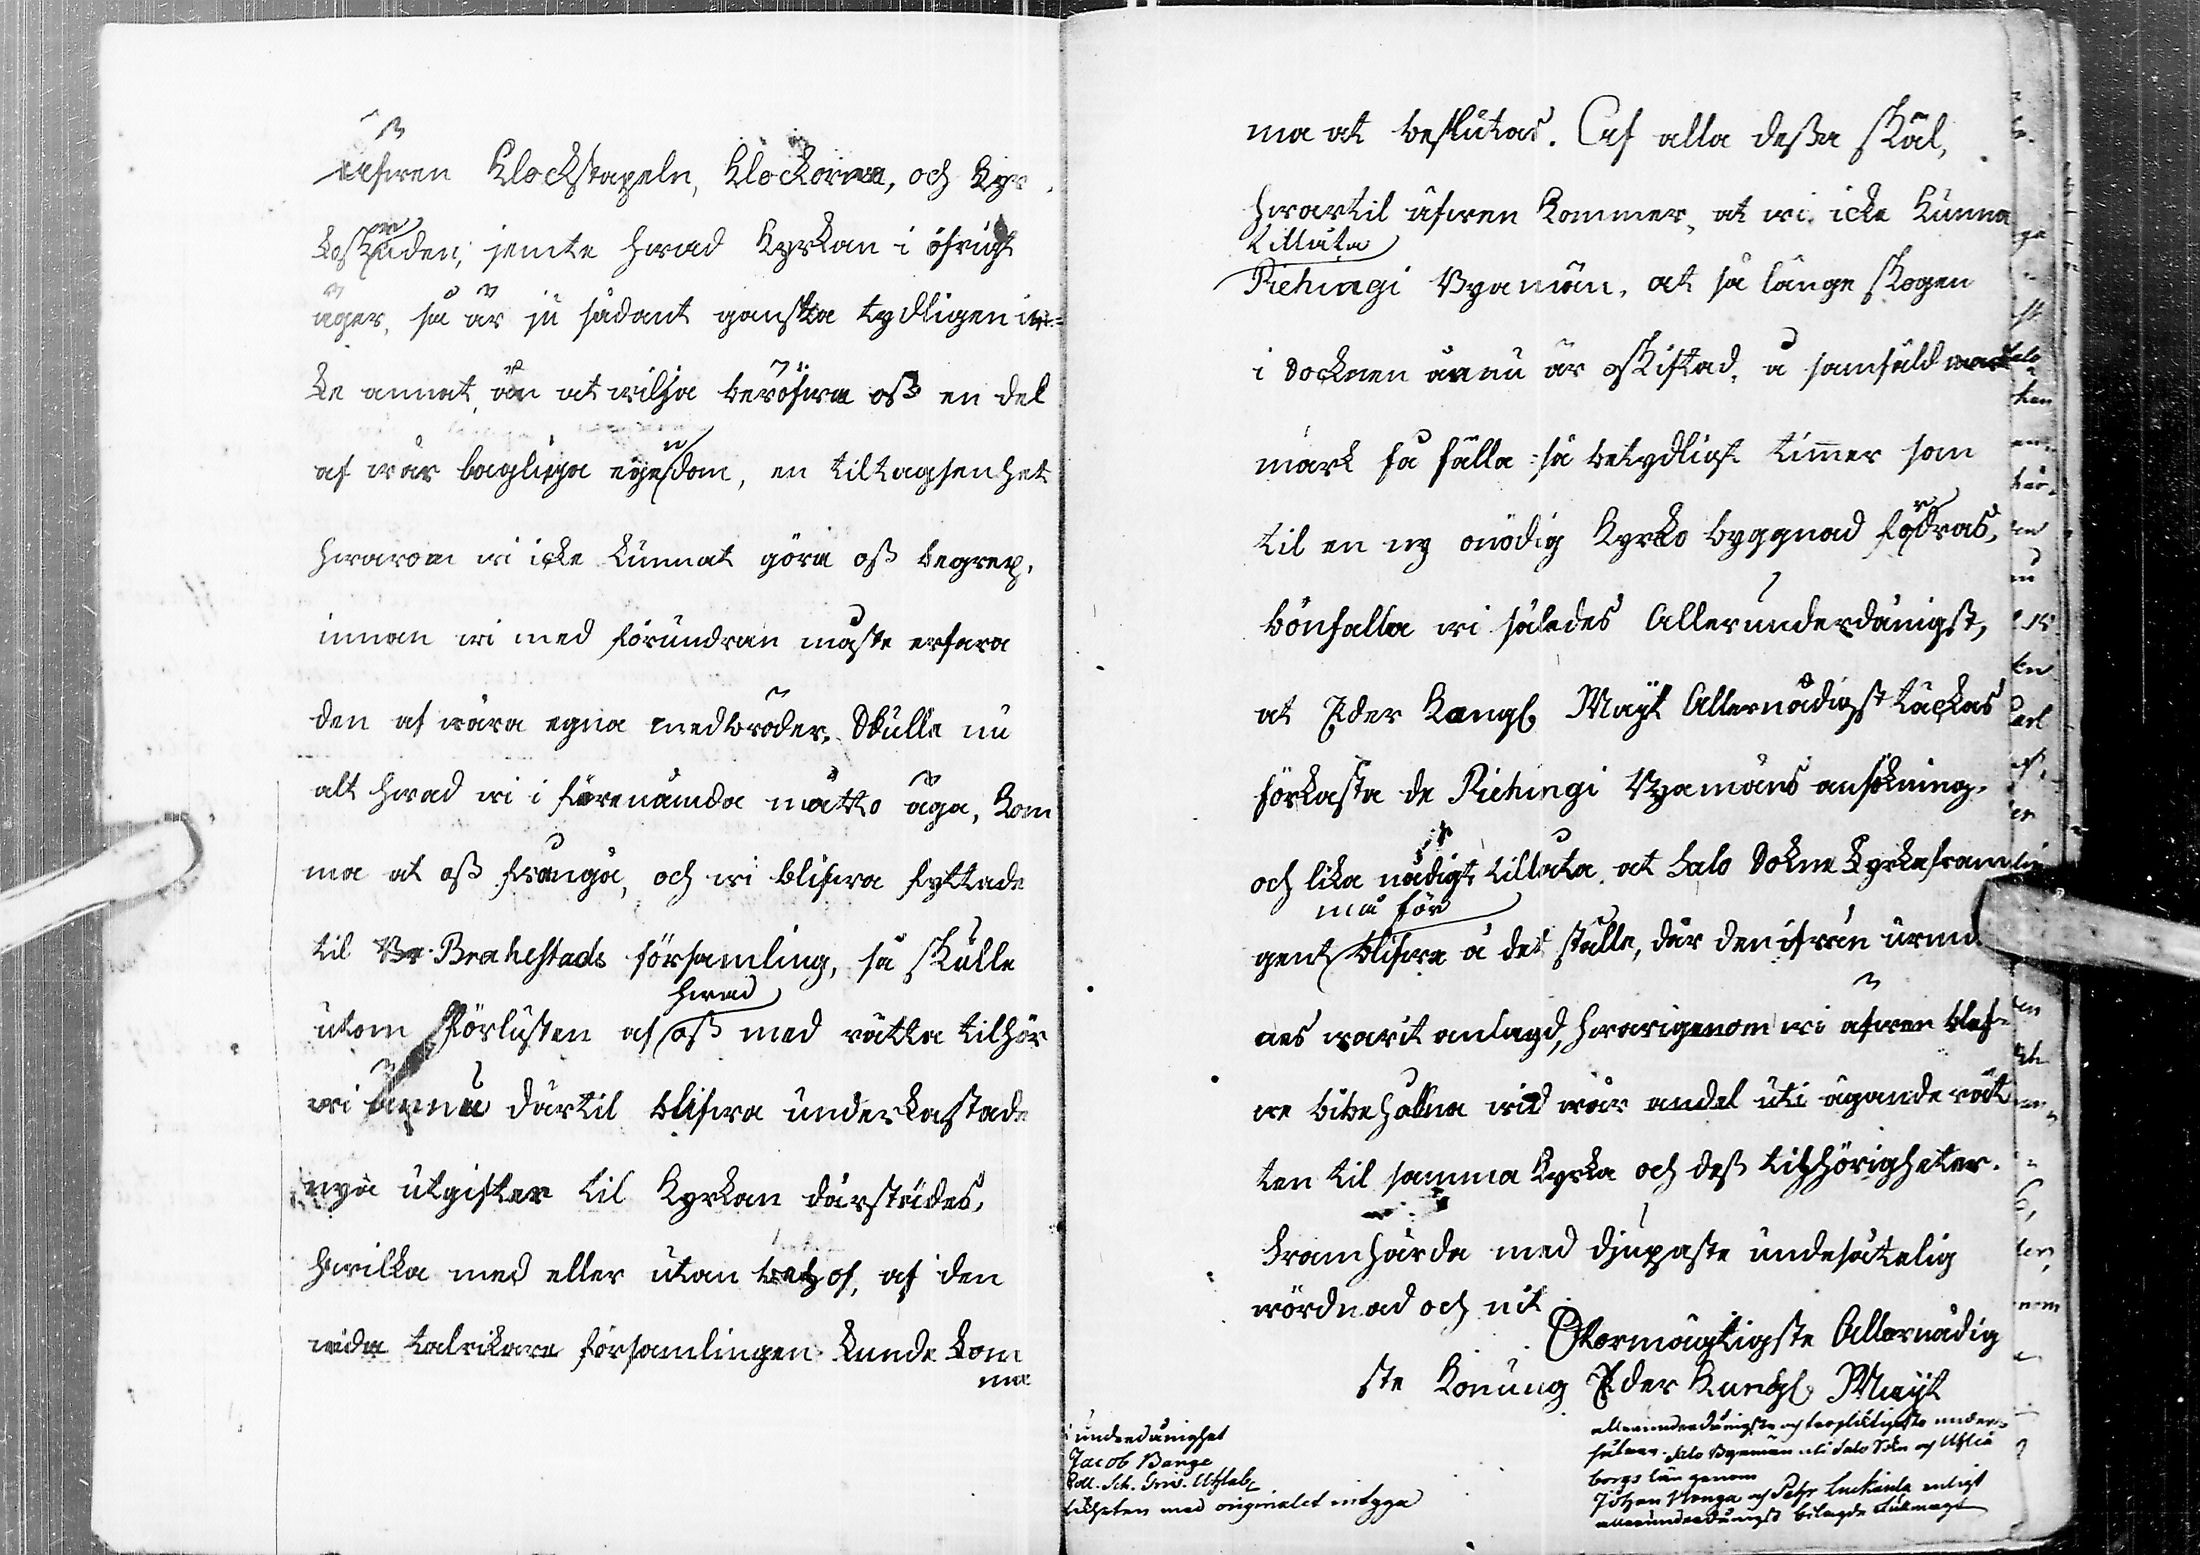 äfwen Klockstapeln, Klockorna, och Kyr
koskruden; jemte hwad Kyrkan i öfrigt
äger, så är ju sådant ganska tydligen ic=
ke annat, än at wilja beröfwa oss en del
af wår lagliga egendom, en tiltagsenhet
hwarom wi icke kunnat göra oss begrep,
innan wi med förundran måste erfara
den af wåra egna medbröder. Skulle nu
alt hwad wi i förenämda måtto äga, kom
ma at oss frångå, och wi blifwa flyttade
til Brahestads församling, så skulle
utom förlusten af hwad oss med rätta tilhör
wi ännu därtil blifwa underkastade
nya utgifter til Kyrkan därstädes,
hwilka med eller utan behof, af den
wida talrikare församlingen kunde kom
ma
ma at beslutas. Af alla dessa skäl,
hwartil äfwen kommer, at wi icke kunna
tillåta
Piehingi Byamän, at så länge skogen
i Socknen ännu är oskiftad, å samfäld
mark få fälla så betydligt timmer som
til en ny onödig Kyrko byggnad fodras,
bönfalla wi således Allerunderdånigst,
at Eder Kongl. Mayt Allernådigst täckas
förkasta de Piehingi Byamäns ansökning,
och lika nådigt tillåta, at Salo Sokne Kyrka framde
må för
gent blifwa å det ställe, där den ifrån urmin
nes warit anlagd, hwarigenom wi äfwen blef=
we bibehållna wid wår andel uti äganderät
ten til samma Kyrka och dess tilhörigheter.
framhärda med djupaste undesåtelig
wördnad och nit
Stormägtigste Allernådig
ste Konung Eder Kungl. Mayt
allerunderdånigste och tropligtigste under=
såtare. Salo Byamän uti Salo Sokn och Uleå
borgs län genom
Johan och Pehr enligt
allerunderdånigst bilagde fullmagt
i underdånighet
Jacob Bange
likheten med originalet intyga